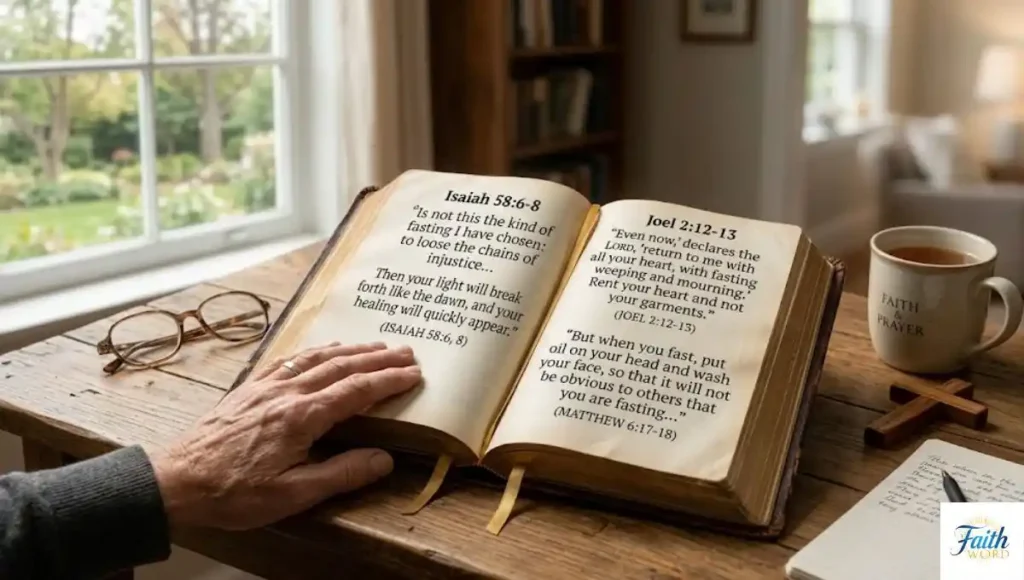 Isaiah 58:6-8
"Is not this the kind of
fasting I have chosen:
to loose the chains of
injustice...
Then your light will break
forth like the dawn, and your
healing will quickly appear."
(ISAIAH 58:6, 8)
Joel 2:12-13
"Even now,' declares the
LORD, 'return to me with
all your heart, with fasting
weeping and mourning.'
Rent your heart and not
your garments."
(JOEL 2:12-13)
"But when you fast, put
oil on your head and wash
your face, so that it will not
be obvious to others that
you are fasting..."
(MATTHEW 6:17-18)
FAITH
&
PRAYER
Faith
WORD